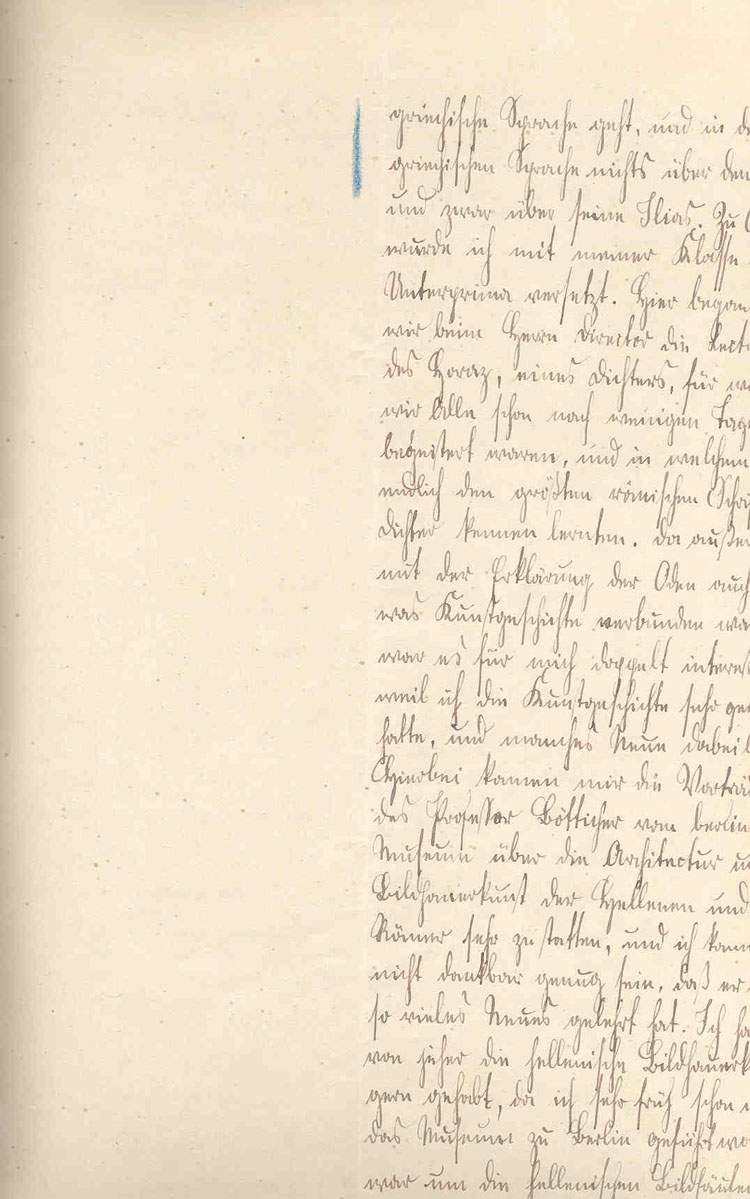 griechische Sprache geht, und in
griechischen Sprache nichts über den
und zwar über seine Ilias. Zu
wurde ich mit meiner Klasse
Unterprima versetzt. Hier began
wir beim Herrn Director die Lect
des Horaz, eines Dichters, für
wir Alle schon nach wenigen Tage
begeistert waren, und in welchem
endlich den größten römischen
Dichter kennen lernten. Da außer
mit der Erklärung der Oden auch
was Kunstgeschichte verbunden wa
war es für mich doppelt interes
weil ich die Kunstgeschichte sehr ge
hatte, und manches Neue dabei
Hierbei kamen mir die Vorträ
des Professor Bötticher vom berlin
Museum über die Architectur u
Bildhauerkunst der Hellenen und
Römer sehr zu statten, und ich kann
nicht dankbar genug sein, daß er
so vieles Neues gelehrt hat. Ich ha
von jeher die hellenische Bildhauerk
gern gehabt, da ich sehr früh schon
das Museum zu Berlin geführt wo
war um die hellenischen Bildsäulen